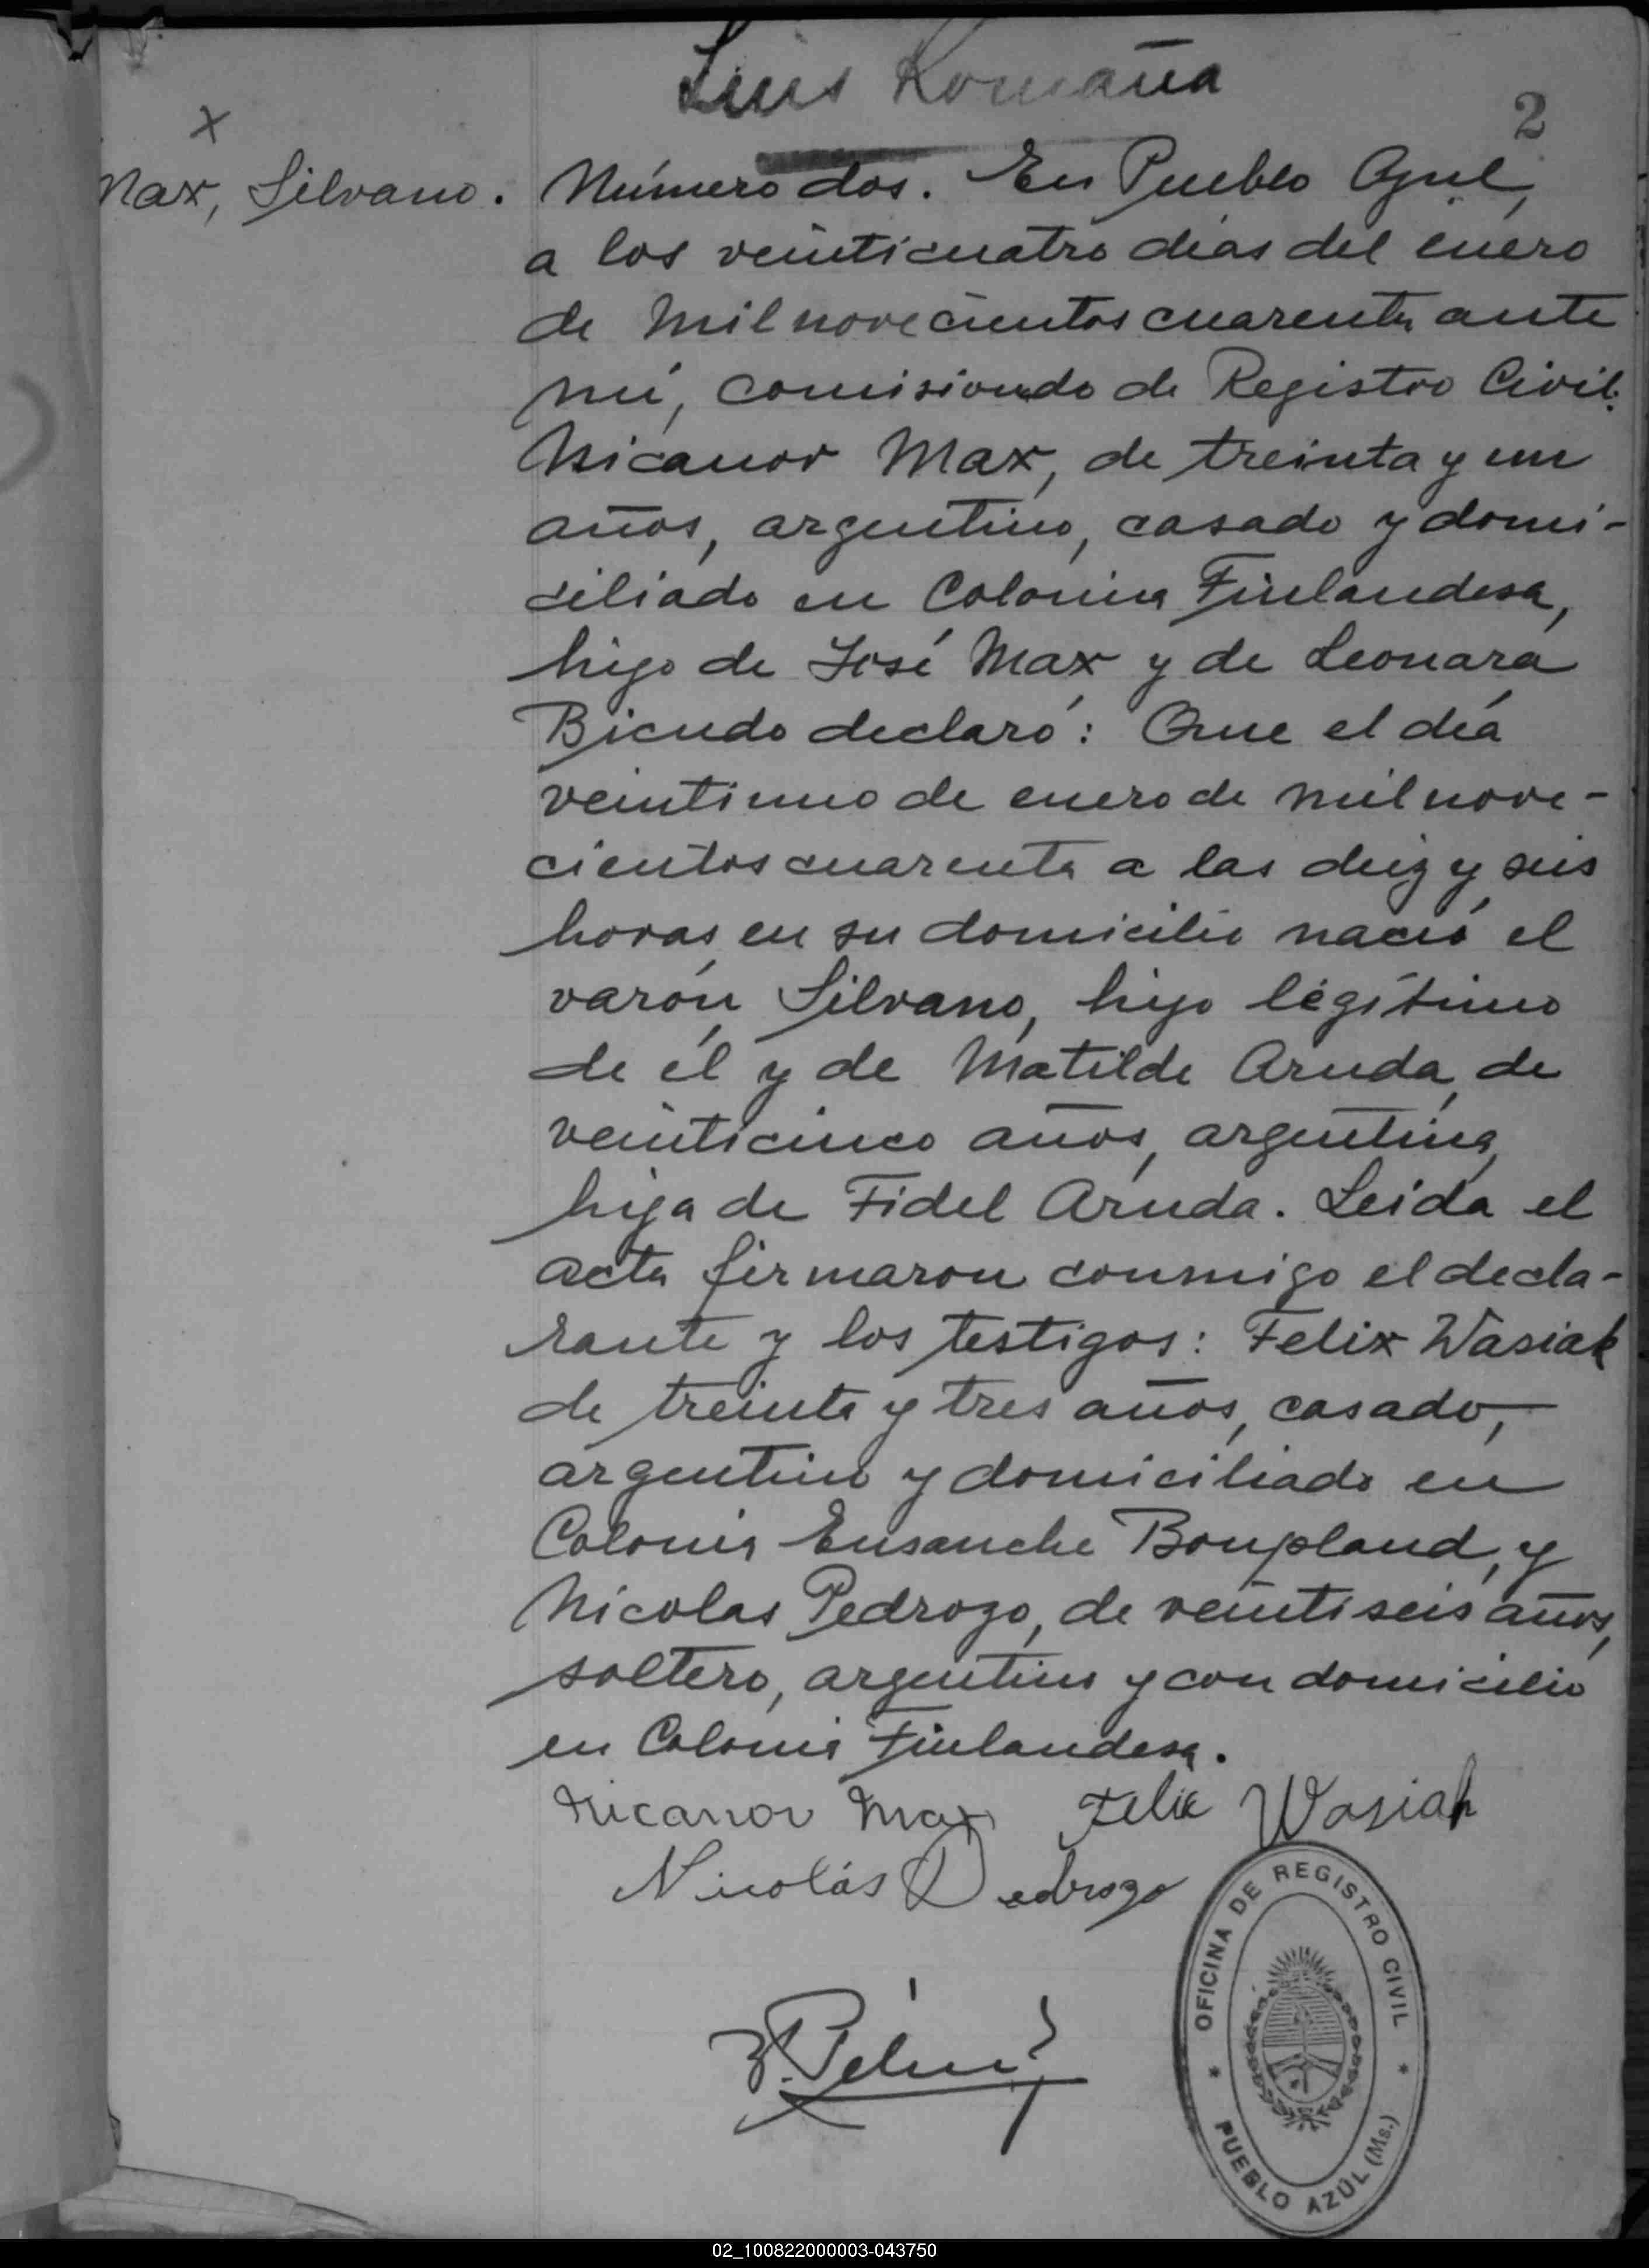 Luis Romaña
2
x
Max, Silvano.
Número dos. En Pueblo Azul,
a los veinticuatro días del enero
de mil novecientos cuarenta ante
mí, comisionado de Registro Civil.
Nicanor Max, de treinta y un
años, argentino, casado y domi-
ciliado en Colonia Finlandesa,
hijo de José Max y de Leonara
Bicudo declaró: Que el día
veintiuno de enero de mil nove-
cientos cuarenta a las diez y seis
horas, en su domicilio nació el
varón Silvano, hijo legítimo
de él y de Matilde Aruda, de
veinticinco años, argentina,
hija de Fidel Aruda. Leída el
acta firmaron conmigo el decla-
rante y los testigos: Felix Wasiak
de treinta y tres años, casado,
argentino y domiciliado en
Colonia Ensanche Bonpland, y
Nicolas Pedrozo, de veintiseis años,
soltero, argentino y con domicilio
en Colonia Finlandesa.
Nicanor Max Felix Wasiak
Nicolás Pedrozo
OFICINA DE REGISTRO CIVIL
* PUEBLO AZUL (Ms.) *
02_100822000003-043750